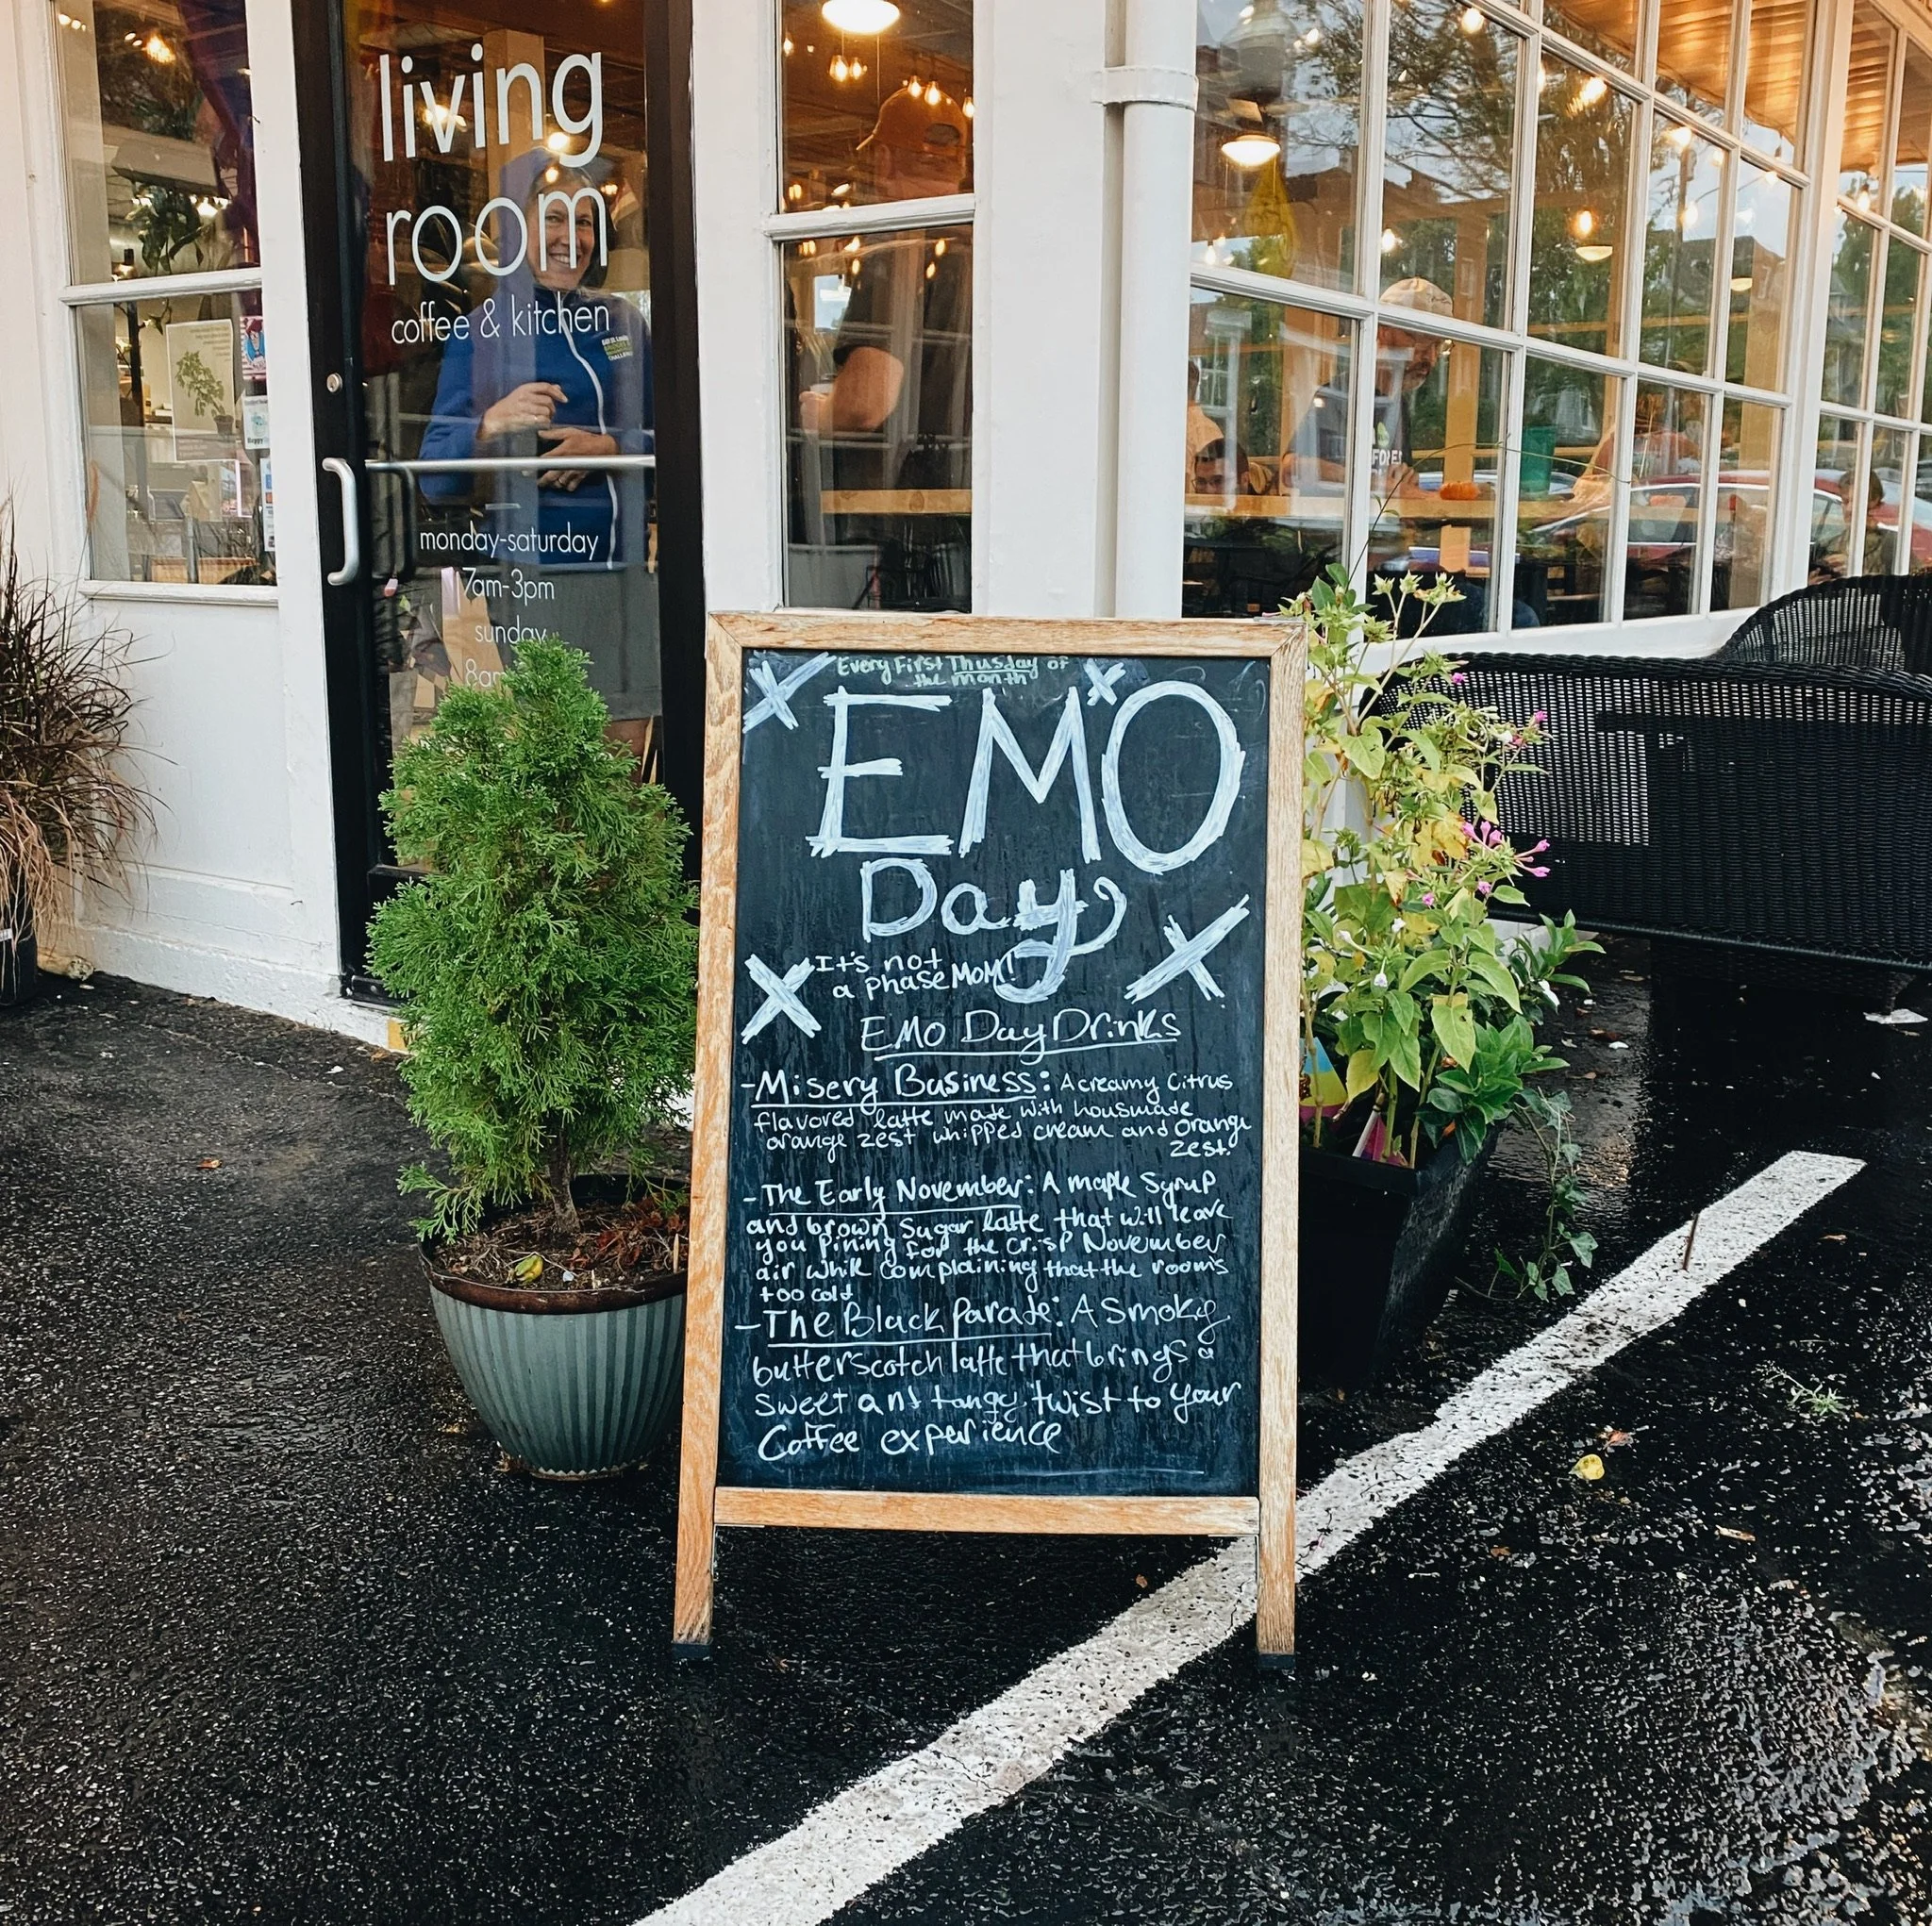 living
room
coffee & kitchen
monday-saturday
7am-3pm
sunday
8am
Every First Thusday of
the month
EMO
Day
It's not
a phase MOM!
EMO Day Drinks
-Misery Business: A creamy Citrus
flavored latte made with housmade
orange zest whipped cream and orange
zest.
-The Early November: A maple Syrup
and brown sugar latte that will leave
you pining for the crisp November
air while complaining that the room's
too cold
-The Black Parade: A smoky
butterscotch latte that brings a
sweet and tangy twist to your
Coffee experience